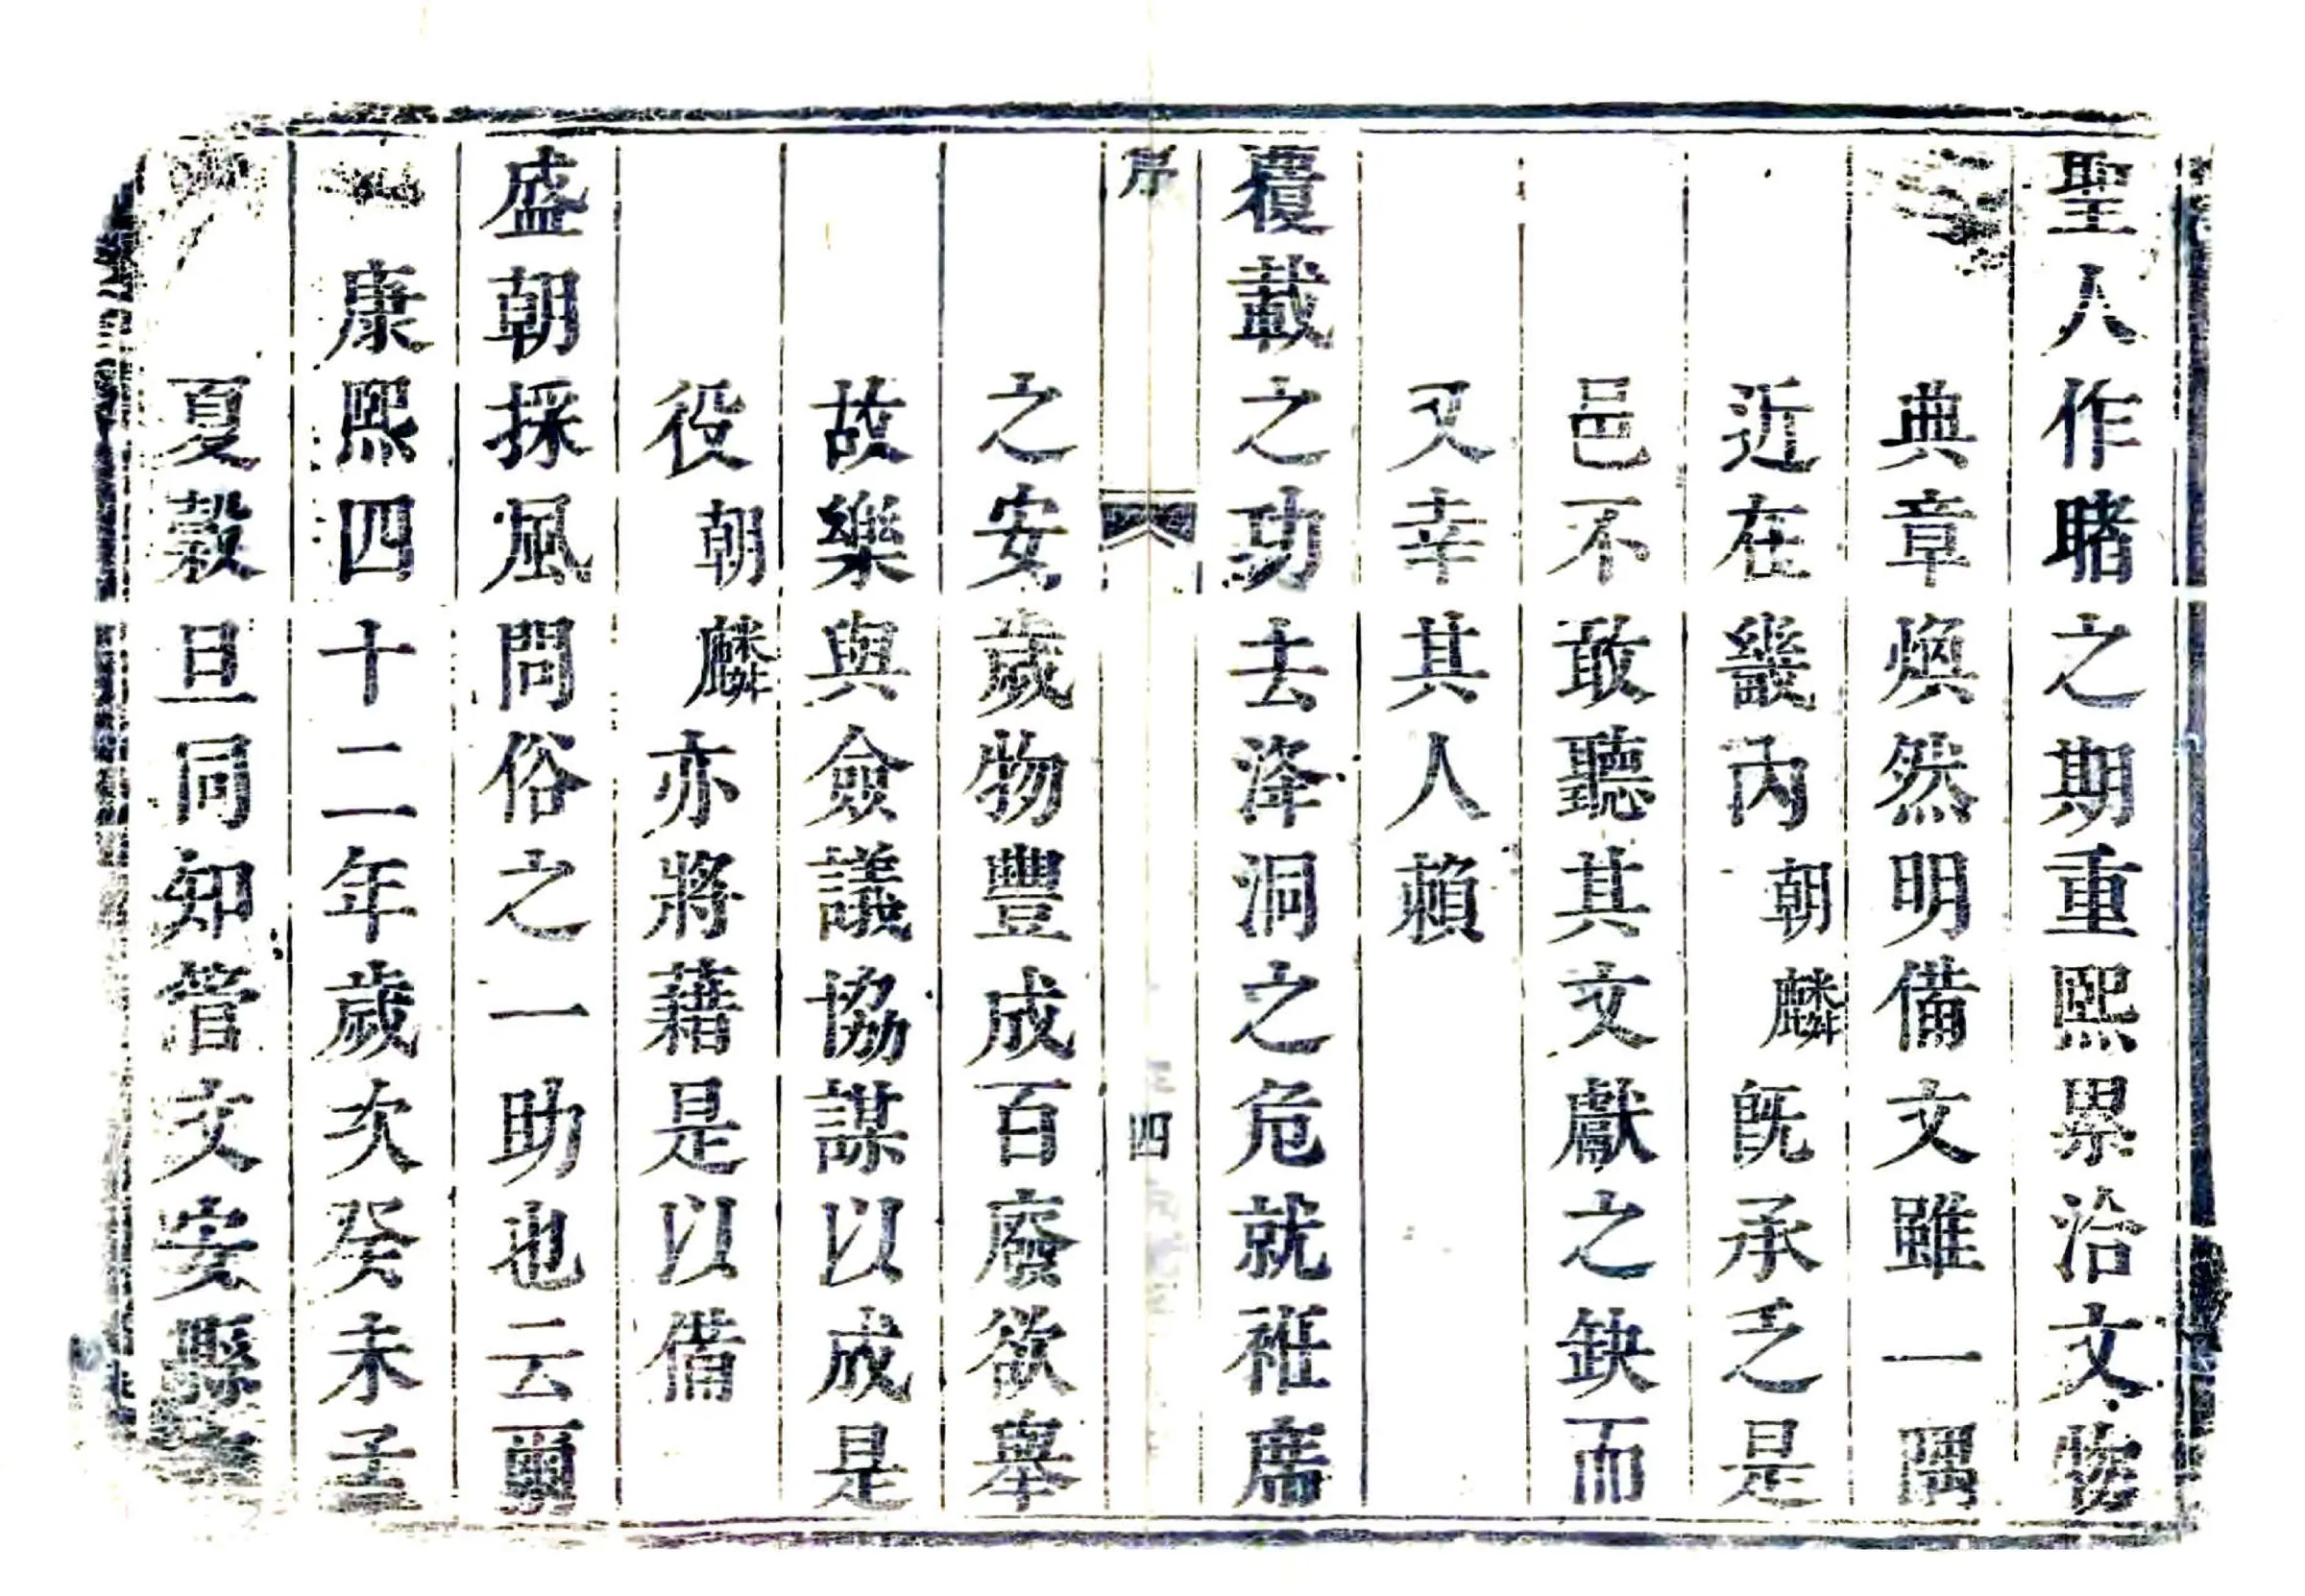 聖人作睹之期重熙累洽文物
典章煥然明備文雖一隅
近在畿內朝麟既承乏是
邑不敢聽其文獻之缺而
又幸其人賴
覆載之功去洚洞之危就袵席
序
四
之安歲物豐成百廢欲舉
故樂與僉議協謀以成是
役朝麟亦將藉是以備
盛朝採風問俗之一助也云爾
康熙四十二年歲次癸未孟
夏穀旦同知管文安縣